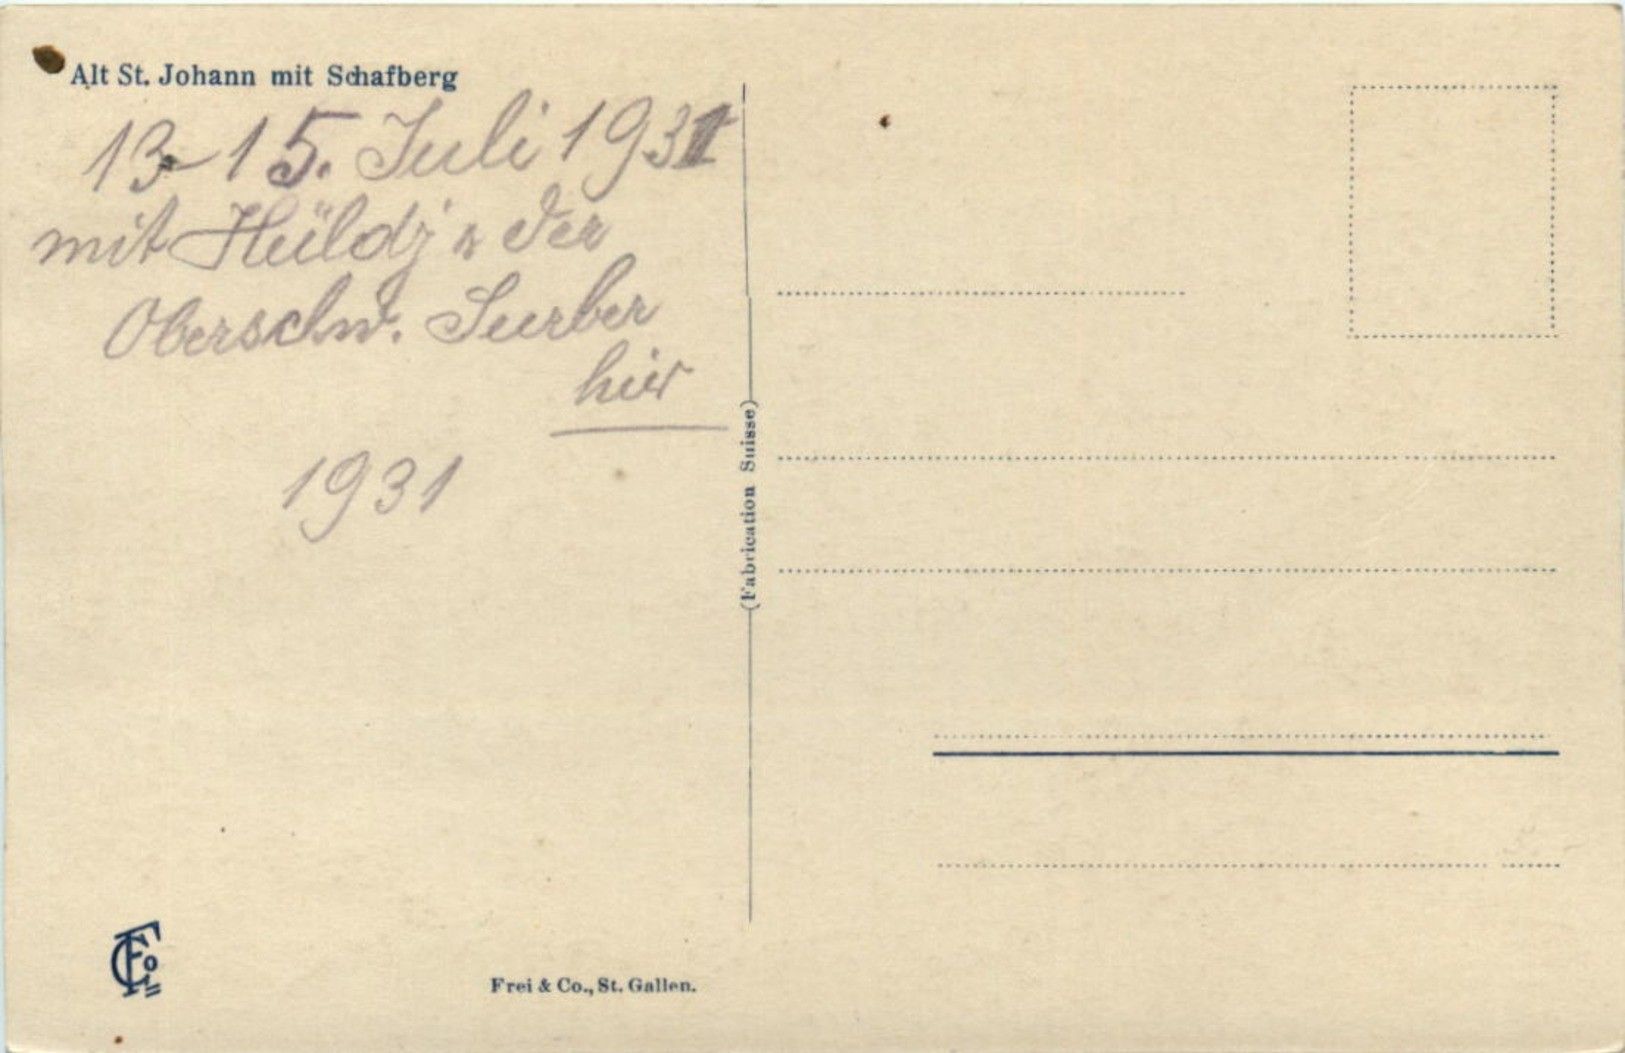 Alt St. Johann mit Schafberg
13-15. Juli 1931
mit Hüldj u der
Oberschw. Surber
hier
1931
(Fabrication Suisse)
Frei & Co., St. Gallen.